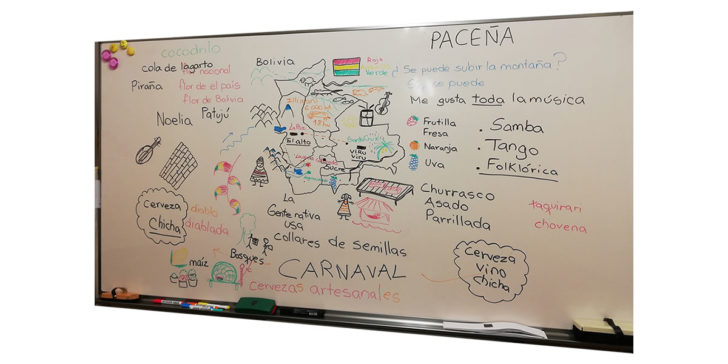 PACEÑA
cocodrilo
cola de lagarto
flor nacional
Piraña
flor de el país
flor de Bolivia
Patujú
Noelia
Bolivia
Rojo
Verde
¿Se puede subir la montaña?
se puede
Me gusta toda la música
Frutilla
Fresa
Naranja
Uva
. Samba
. Tango
. Folklórica
Illimani
La Paz
El alto
Santa Cruz
VIRU
VIRU
Sucre
Cerveza
chicha
diablo
diablada
La
Gente nativa
usa
collares de semillas
Churrasco
Asado
Parrillada
taquirari
chovena
Bosques
maíz
CARNAVAL
Cervezas artesanales
Cerveza
vino
chicha